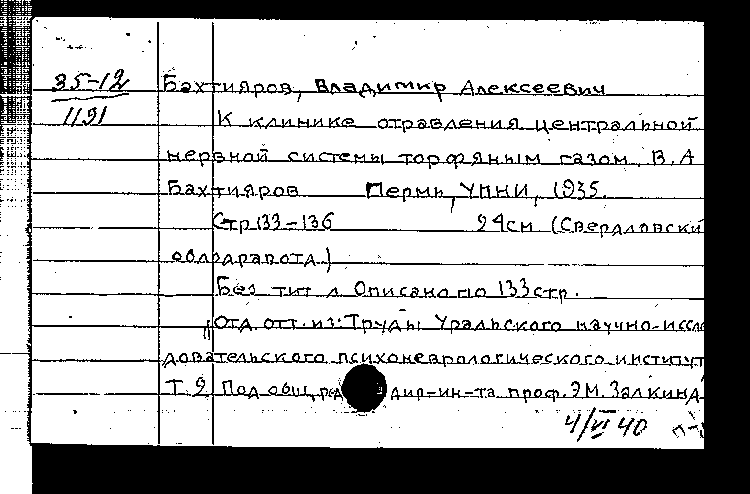 35-12 Бахтияров, Владимир Алексеевич
1191 К клинике отравления центральной
нервной системы торфяным газом. В.А
Бахтияров Пермь, УПНИ, 1935.
Стр 133-136 24см (Свердловски
облздравота)
Без тит л Описано по 133 стр.
Отд. отт. из: Труды Уральского научно-иссле
довательского психоневрологического институт
Т. 2 Под общ. ред дир-ин-та проф. Э.М. Залкинд
4/VI 40